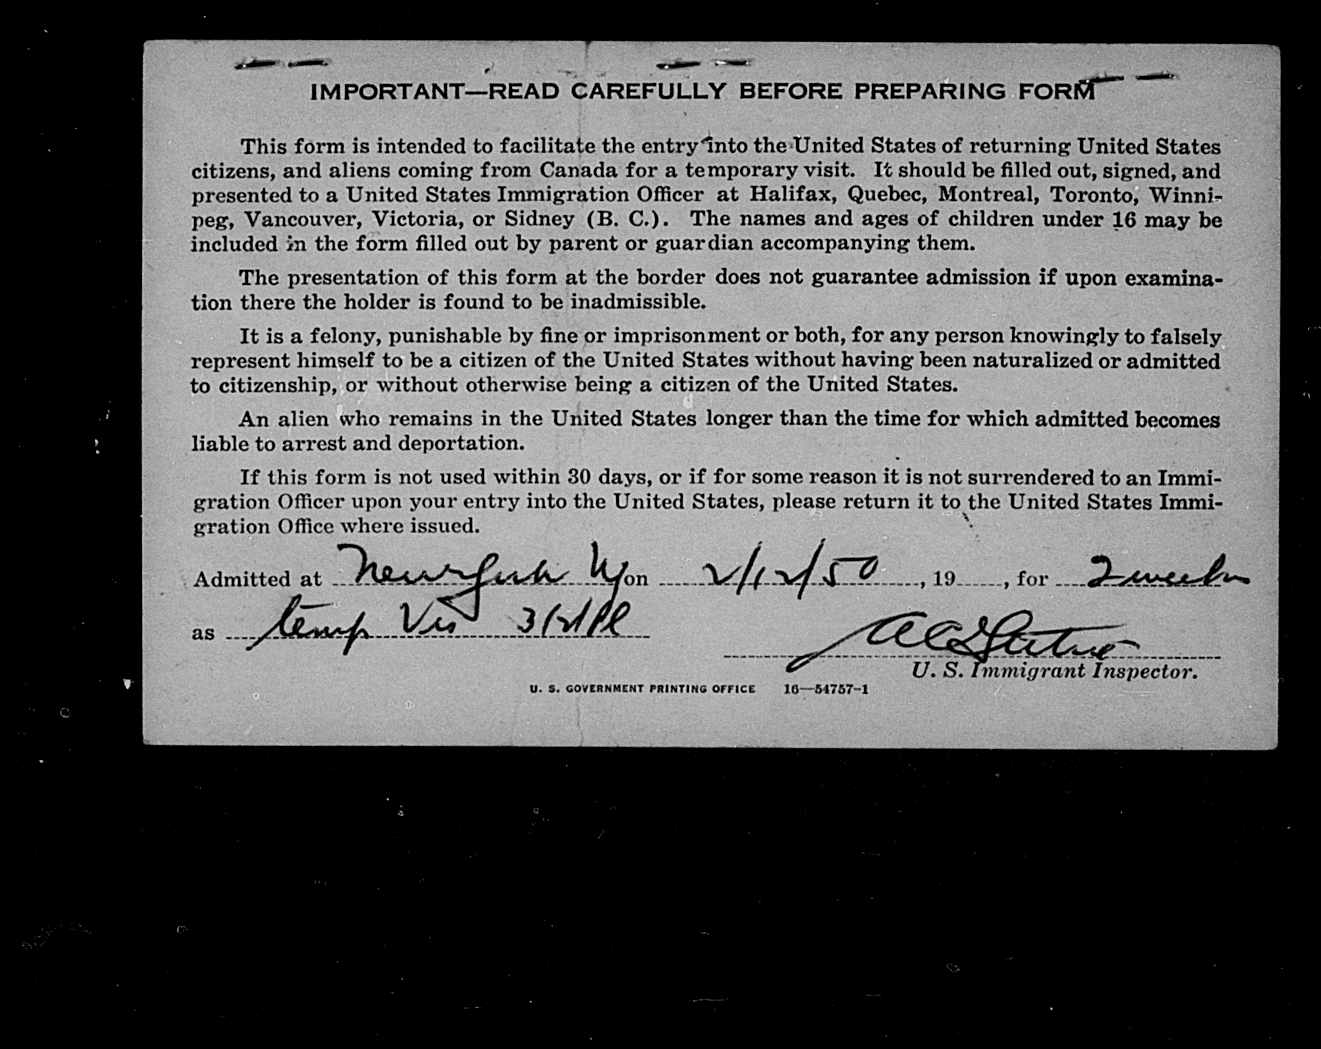 IMPORTANT—READ CAREFULLY BEFORE PREPARING FORM
This form is intended to facilitate the entry into the United States of returning United States
citizens, and aliens coming from Canada for a temporary visit. It should be filled out, signed, and
presented to a United States Immigration Officer at Halifax, Quebec, Montreal, Toronto, Winni-
peg, Vancouver, Victoria, or Sidney (B. C.). The names and ages of children under 16 may be
included in the form filled out by parent or guardian accompanying them.
The presentation of this form at the border does not guarantee admission if upon examina-
tion there the holder is found to be inadmissible.
It is a felony, punishable by fine or imprisonment or both, for any person knowingly to falsely
represent himself to be a citizen of the United States without having been naturalized or admitted
to citizenship, or without otherwise being a citizen of the United States.
An alien who remains in the United States longer than the time for which admitted becomes
liable to arrest and deportation.
If this form is not used within 30 days, or if for some reason it is not surrendered to an Immi-
gration Officer upon your entry into the United States, please return it to the United States Immi-
gration Office where issued.
Admitted at New York Ny on 2/12/50, 19, for 2 weeks
as temp Vis
U. S. Immigrant Inspector.
U. S. GOVERNMENT PRINTING OFFICE 16—54757-1